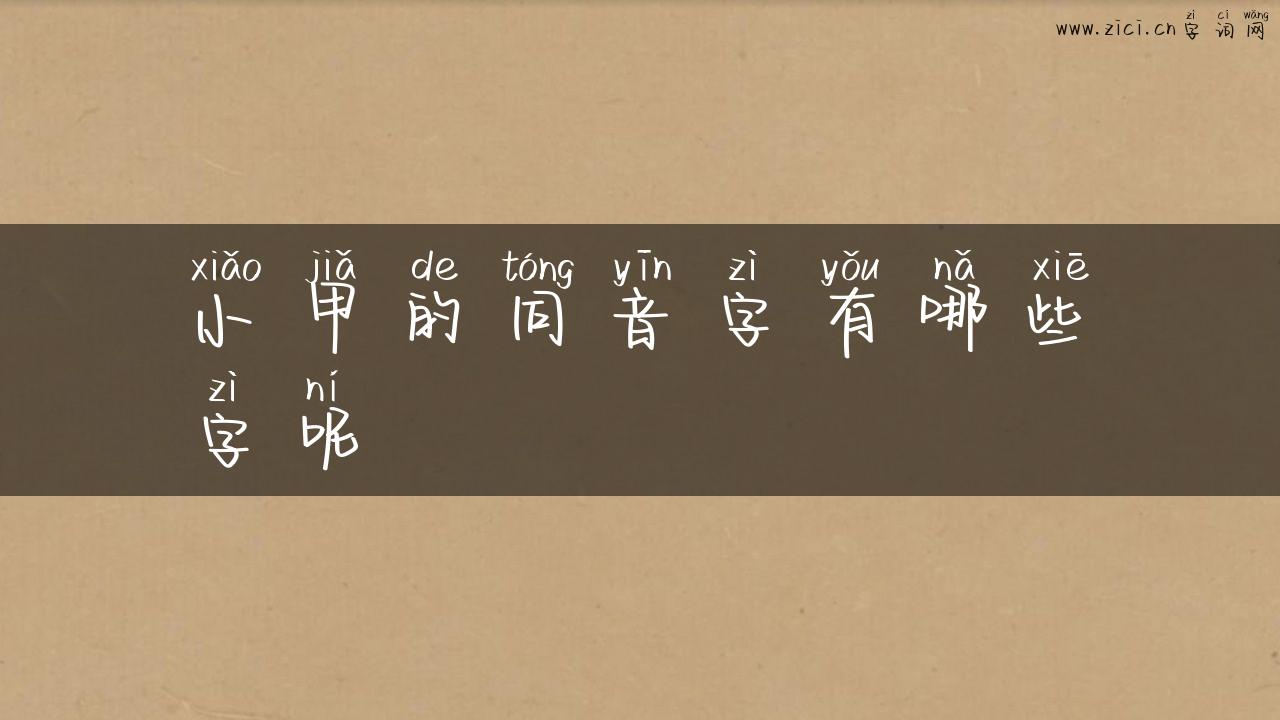 www.zici.cn zì cí wǎng
字词网
xiǎo jiǎ de tóng yīn zì yǒu nǎ xiē
小甲的同音字有哪些
zì ní
字呢